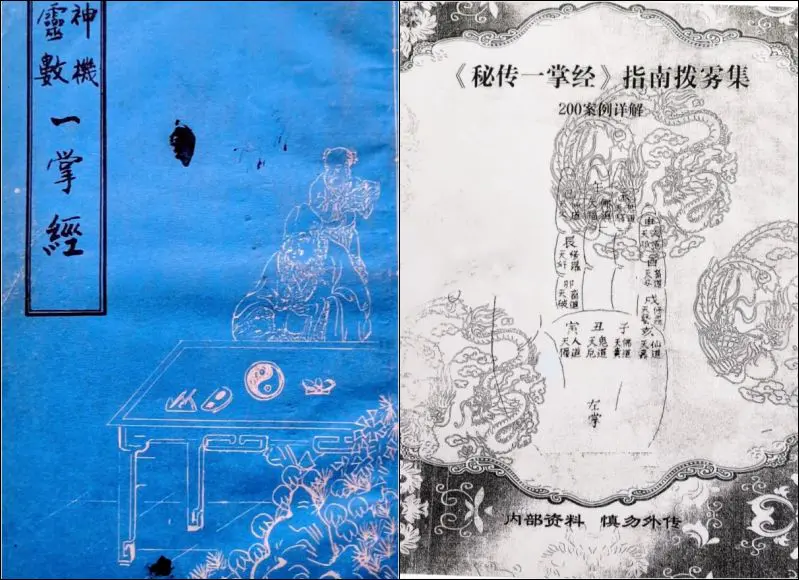 神機
靈數
一掌經
《秘传一掌经》指南拨雾集
200案例详解
午
佛道
天福
辰
天奸
卯
畜道
天破
酉
畜道
戌
亥
仙道
寅
人道
丑
鬼道
天厄
子
佛道
天貴
左掌
内部资料 慎勿外传